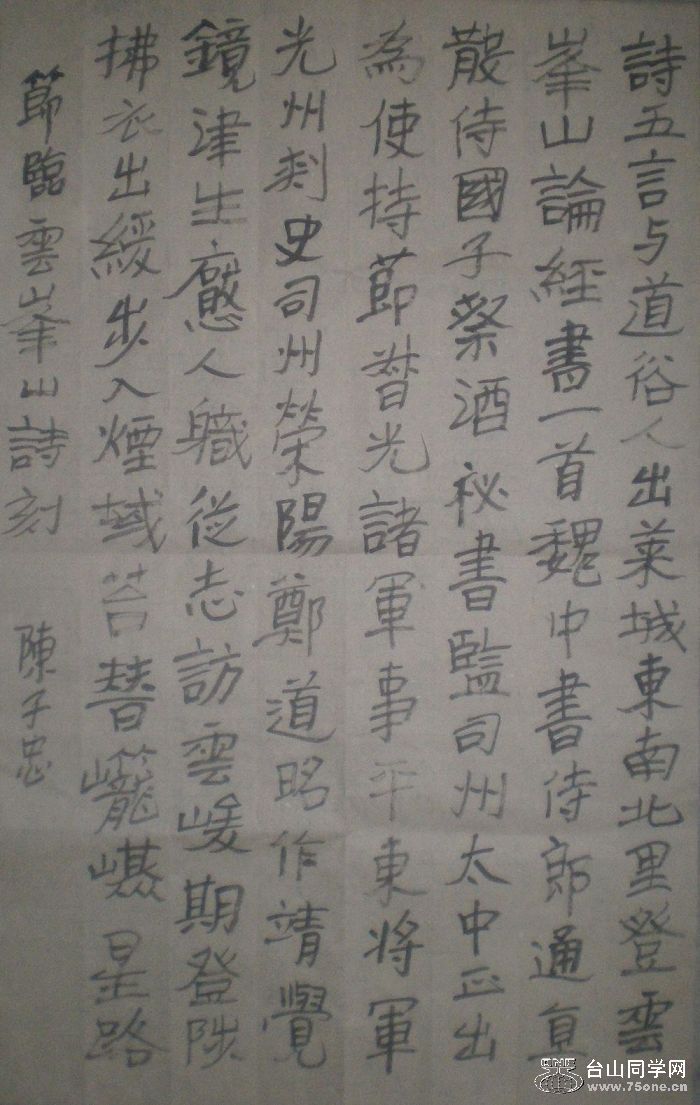 詩五言与道俗人出莱城東南北里登雲
峯山論經書一首魏中書侍郎通直
散侍國子祭酒祕書監司州太中正出
為使持節督光諸軍事平東将軍
光州刺史司州荣陽鄭道昭作靖覺
鏡津生應人職從志訪雲峻期登陟
拂衣出緩步入煙域苔替巃嵸星路
節臨雲峯山詩刻 陳子忠
台山同学网
www.75one.com